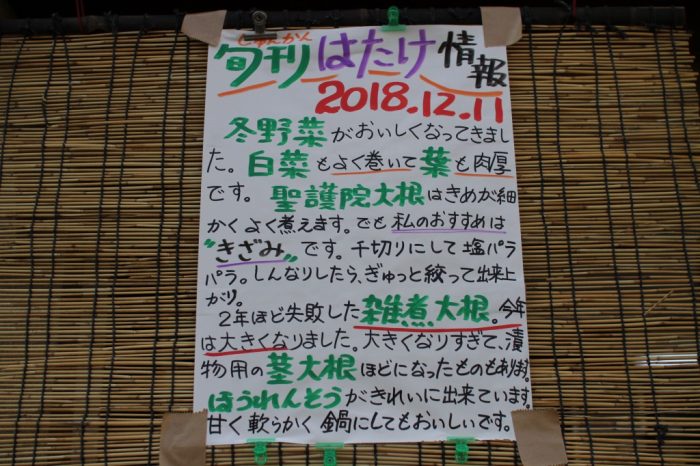 じゅんかん
旬刊はたけ情報
2018.12.11
冬野菜がおいしくなってきまし
た。白菜もよく巻いて葉も肉厚
です。聖護院大根はきめが細
かくよく煮えます。でも私のおすすめは
"きざみ"です。千切りにして塩パラ
パラ。しんなりしたら、ぎゅっと絞って出来上
がり。
2年ほど失敗した雑煮大根。今年
は大きくなりました。大きくなりすぎて、漬
物用の茎大根ほどになったものもあります。
ほうれんそうがきれいに出来ています。
甘く軟らかく鍋にしてもおいしいです。